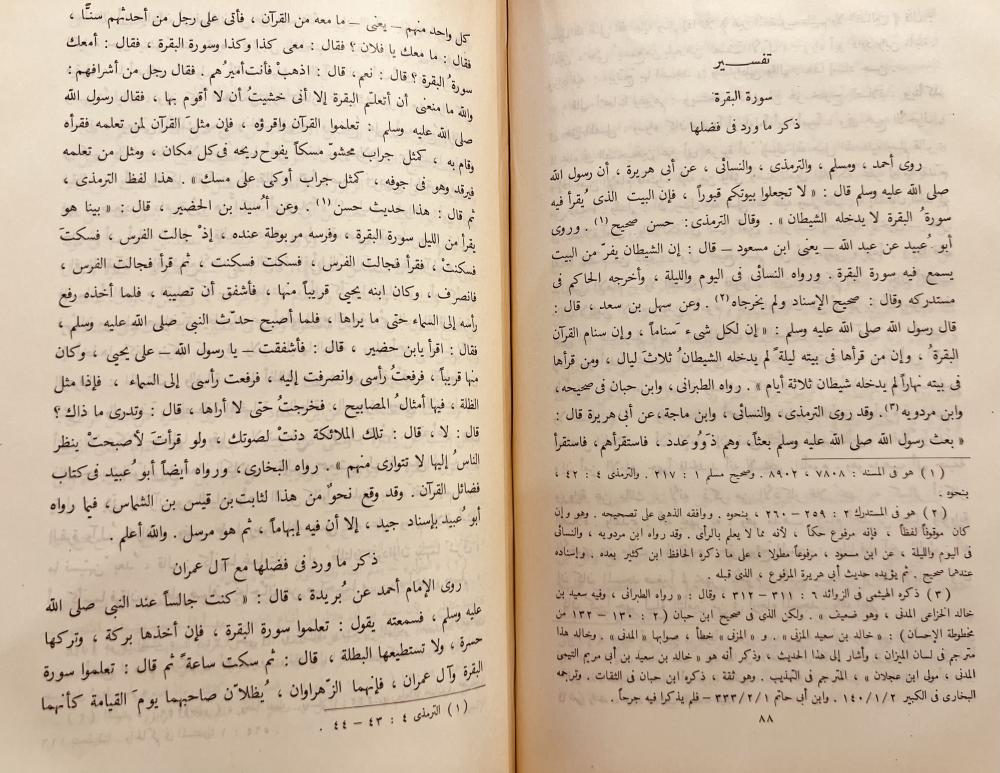 تفسير
سورة البقرة
ذكر ما ورد فى فضلها
روى أحمد، ومسلم، والترمذى، والنسائى، عن أبى هريرة، أن رسول الله
صلى الله عليه وسلم قال: «لا تجعلوا بيوتكم قبوراً، فإن البيت الذى يُقرأ فيه
سورةُ البقرة لا يدخله الشيطان». وقال الترمذى: حسن صحيح(١). وروى
أبو عُبيد عن عبد الله – يعنى ابن مسعود – قال: إن الشيطان يفرّ من البيت
يسمع فيه سورة البقرة. ورواه النسائى فى اليوم والليلة، وأخرجه الحاكم فى
مستدركه وقال: صحيح الإسناد ولم يخرجاه(٢). وعن سهل بن سعد، قال:
قال رسول الله صلى الله عليه وسلم: «إن لكل شىء سَناماً، وإن سنام القرآن
البقرةُ، وإن من قرأها فى بيته ليلةً لم يدخله الشيطانُ ثلاثَ ليال، ومن قرأها
فى بيته نهاراً لم يدخله شيطان ثلاثة أيام». رواه الطبرانى، وابن حبان فى صحيحه،
وابن مردويه(٣). وقد روى الترمذى، والنسائى، وابن ماجة، عن أبى هريرة قال:
«بعث رسول الله صلى الله عليه وسلم بعثاً، وهم ذَوُو عدد، فاستقرأهم، فاستقرأ
(١) هو فى المسند: ٧٨٠٨، ٨٩٠٢. وصحيح مسلم ١: ٢١٧. والترمذى ٤: ٤٢،
بنحوه.
(٢) هو فى المستدرك ٢: ٢٥٩ – ٢٦٠، بنحوه. ووافقه الذهبى على تصحيحه. وهو وإن
كان موقوفاً لفظاً، فإنه مرفوع حكماً، لأنه مما لا يعلم بالرأى. وقد رواه ابن مردويه، والنسائى
فى اليوم والليلة، عن ابن مسعود، مرفوعاً مطولا، على ما ذكره الحافظ ابن كثير بعده. وإسناده
عندهما صحيح. ثم يؤيده حديث أبى هريرة المرفوع، الذى قبله.
(٣) ذكره الهيثمى فى الزوائد ٦: ٣١١ – ٣١٢، وقال: «رواه الطبرانى، وفيه سعيد بن
خالد الخزاعى المدنى، وهو ضعيف». ولكن الذى فى صحيح ابن حبان (٢: ١٣٠ – ١٣٢ من
مخطوطة الإحسان): «خالد بن سعيد المزنى». و «المزنى» خطأ، صوابها «المدنى». وخالد هذا
مترجم فى لسان الميزان، وأشار إلى هذا الحديث، وذكر أنه هو «خالد بن سعيد بن أبى مريم التيمى
المدنى، مولى ابن عجلان»، المترجم فى التهذيب. وهو ثقة، ذكره ابن حبان فى الثقات. وترجمه
البخارى فى الكبير ١٤٠/١/٢. وابن أبى حاتم ٣٣٣/٢/١ – فلم يذكرا فيه جرحاً.
٨٨
كل واحد منهم – يعنى – ما معه من القرآن، فأتى على رجل من أحدثهم سنًّا،
فقال: ما معك يا فلان؟ فقال: معى كذا وكذا وسورة البقرة، فقال: أمعك
سورةُ البقرة؟ قال: نعم، قال: اذهبْ فأنت أميرُهم. فقال رجل من أشرافهم:
والله ما منعنى أن أتعلّم البقرة إلا أنى خشيتُ أن لا أقوم بها، فقال رسول الله
صلى الله عليه وسلم: تعلموا القرآن واقرؤه، فإن مثلَ القرآن لمن تعلمه فقرأه
وقام به، كمثل جراب محشوّ مسكاً يفوح ريحه فى كل مكان، ومثل من تعلمه
فيرقد وهو فى جوفه، كمثل جراب أوكى على مسك». هذا لفظ الترمذى،
ثم قال: هذا حديث حسن(١). وعن أُسيد بن الحضير، قال: «بينا هو
يقرأ من الليل سورة البقرة، وفرسه مربوطة عنده، إذْ جالت الفرس، فسكتَ
فسكنتْ، فقرأ فجالت الفرس، فسكت فسكنت، ثم قرأ فجالت الفرس،
فانصرف، وكان ابنه يحيى قريباً منها، فأشفق أن تصيبه، فلما أخذه رفع
رأسه إلى السماء حتى ما يراها، فلما أصبح حدّث النبىّ صلى الله عليه وسلم،
فقال: اقرأ يابن حضير، قال: فأشفقت – يا رسول الله – على يحيى، وكان
منها قريباً، فرفعتُ رأسى وانصرفت إليه، فرفعت رأسى إلى السماء، فإذا مثل
الظلة، فيها أمثالُ المصابيح، فخرجتُ حتى لا أراها، قال: وتدرى ما ذاك؟
قال: لا، قال: تلك الملائكة دنتْ لصوتك، ولو قرأتَ لأصبحتْ ينظر
الناسُ إليها لا تتوارى منهم». رواه البخارى، ورواه أيضاً أبو عُبيد فى كتاب
فضائل القرآن. وقد وقع نحوٌ من هذا لثابت بن قيس بن الشماس، فيما رواه
أبو عُبيد بإسناد جيد، إلا أن فيه إبهاماً، ثم هو مرسل. والله أعلم.
ذكر ما ورد فى فضلها مع آل عمران
روى الإمام أحمد عن بُريدة، قال: «كنت جالساً عند النبى صلى الله
عليه وسلم، فسمعته يقول: تعلموا سورة البقرة، فإن أخذها بركة، وتركها
حسرة، ولا تستطيعها البطلة، قال: ثم سكت ساعةً ثم قال: تعلموا سورة
البقرة وآل عمران، فإنهما الزّهراوان، يُظلاّن صاحبهما يومَ القيامة كأنهما
(١) الترمذى ٤: ٤٣ – ٤٤.